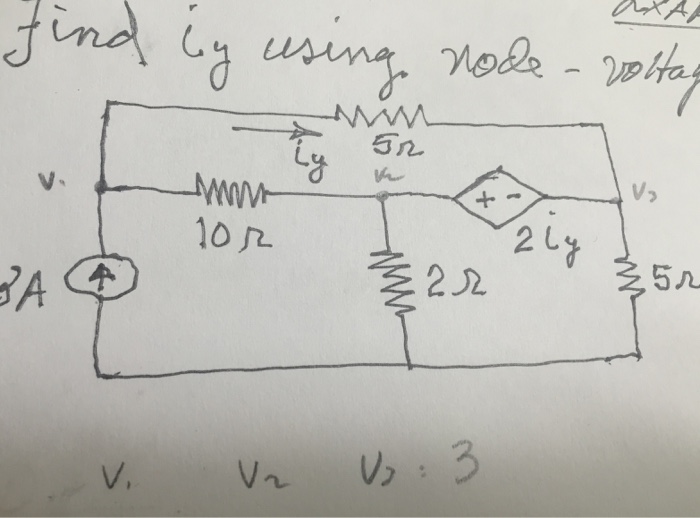 find iy using node - voltag
5Ω
iy
V1
V2
V3
10 Ω
2 iy
3A
2 Ω
5Ω
V1 V2 V3 : 3